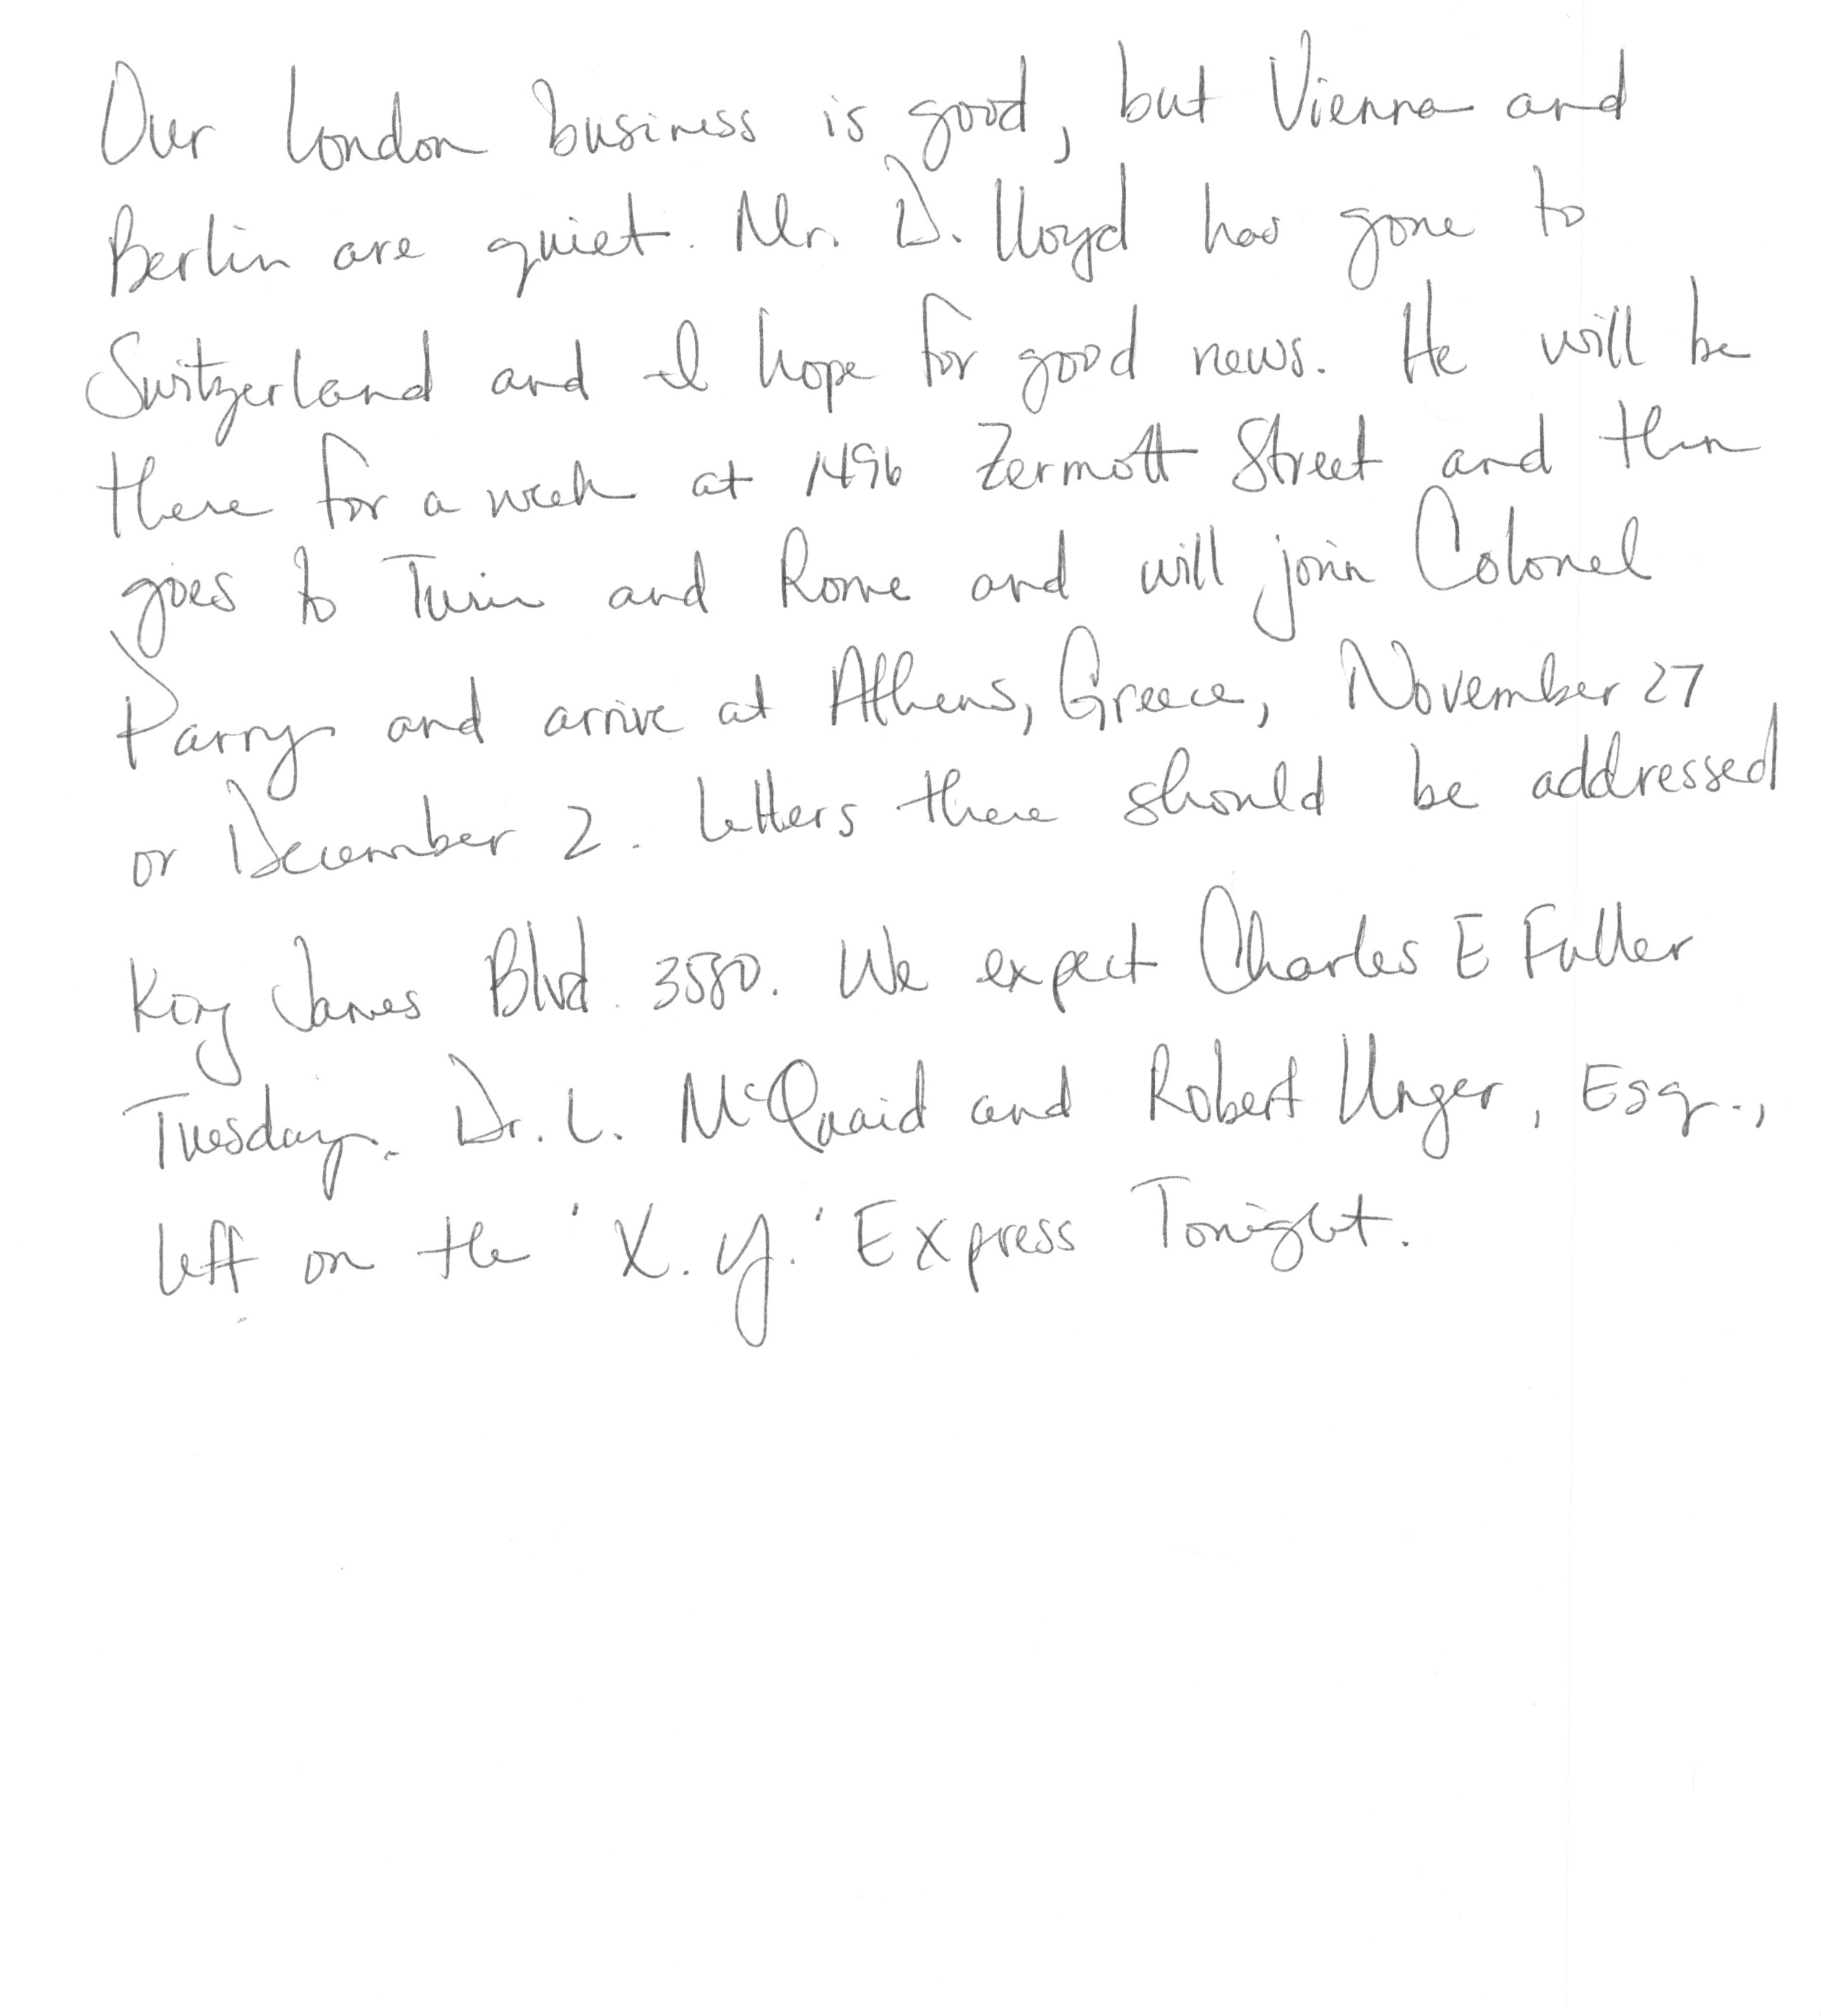 Our London business is good, but Vienna and
Berlin are quiet. Mr. D. Lloyd has gone to
Switzerland and I hope for good news. He will be
there for a week at 1496 Zermott Street and then
goes to Turin and Rome and will join Colonel
Parry and arrive at Athens, Greece, November 27
or December 2. Letters there should be addressed
King James Blvd. 3580. We expect Charles E Fuller
Tuesday. Dr. L. McQuaid and Robert Unger, Esq.,
left on the 'X.Y.' Express Tonight.